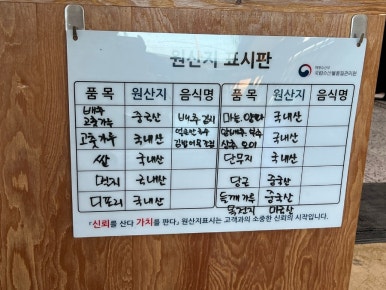 원산지 표시판
국립수산물품질관리원
품 목 원산지 음식명 품 목 원산지 음식명
배추 고춧가루 중국산 배추 김치 마늘, 양파 국내산
고춧가루 국내산 양배추, 부추 상추, 오이 국내산
쌀 국내산 단무지 국내산
멸치 국내산 당근 중국산
디포리 국내산 들깨가루 중국산
목전지 미국산
「신뢰를 산다 가치를 판다」 원산지표시는 고객과의 소중한 신뢰의 시작입니다.